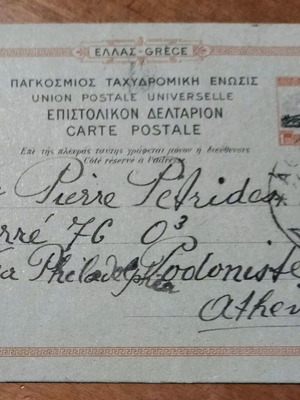 ΕΛΛΑΣ-GRÈCE
ΠΑΓΚΟΣΜΙΟΣ ΤΑΧΥΔΡΟΜΙΚΗ ΕΝΩΣΙΣ
UNION POSTALE UNIVERSELLE
ΕΠΙΣΤΟΛΙΚΟΝ ΔΕΛΤΑΡΙΟΝ
CARTE POSTALE
Ἐπὶ τῆς πλευρᾶς ταύτης γράφεται μόνον ἡ διεύθυνσις
Côté réservé à l'adresse
Pierre Petrides
rré 76 O³
Philadelphia Podoniste
Athen